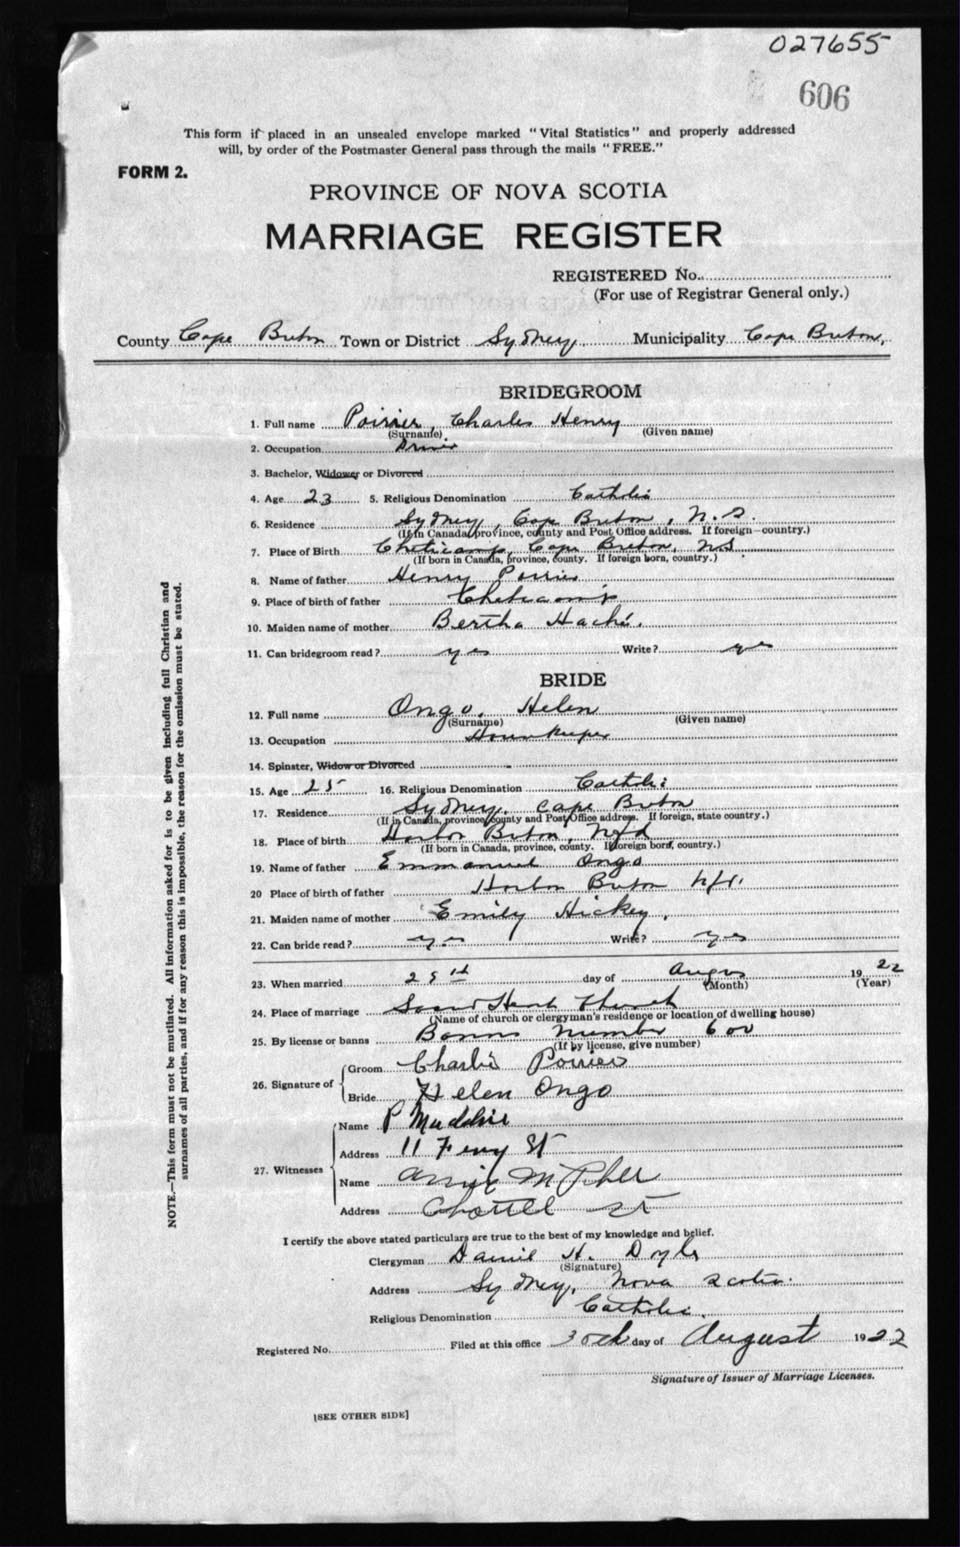 027655
606
This form if placed in an unsealed envelope marked "Vital Statistics" and properly addressed
will, by order of the Postmaster General pass through the mails "FREE."
FORM 2.
PROVINCE OF NOVA SCOTIA
MARRIAGE REGISTER
REGISTERED No.
(For use of Registrar General only.)
County Cape Breton Town or District Sydney Municipality Cape Breton
BRIDEGROOM
1. Full name Poirier, Charles Henry
(Surname) (Given name)
2. Occupation
3. Bachelor, Widower or Divorced
4. Age 23 5. Religious Denomination Catholic
6. Residence Sydney, Cape Breton, N.S.
(If in Canada, province, county and Post Office address. If foreign—country.)
7. Place of Birth Cheticamp, Cape Breton, NS
(If born in Canada, province, county. If foreign born, country.)
8. Name of father Henry Poirier
9. Place of birth of father Cheticamp
10. Maiden name of mother Bertha Haché.
11. Can bridegroom read? yes Write? yes
BRIDE
12. Full name Ongo, Helen
(Surname) (Given name)
13. Occupation Housekeeper
14. Spinster, Widow or Divorced
15. Age 25 16. Religious Denomination Catholic
17. Residence Sydney, Cape Breton
(If in Canada, province, county and Post Office address. If foreign, state country.)
18. Place of birth Harbor Breton, Nfld
(If born in Canada, province, county. If foreign born, country.)
19. Name of father Emmanuel Ongo
20 Place of birth of father Harbor Breton Nfl.
21. Maiden name of mother Emily Hickey.
22. Can bride read? yes Write? yes
23. When married 28th day of August 1922
(Month) (Year)
24. Place of marriage Sacred Heart Church
(Name of church or clergyman's residence or location of dwelling house)
25. By license or banns Banns Number 600
(If by license, give number)
26. Signature of Groom Charlie Poirier
Bride Helen Ongo
27. Witnesses Name P
Address 11 Ferry St
Name Annie
Address St
I certify the above stated particulars are true to the best of my knowledge and belief.
Clergyman Daniel H. Doyle
(Signature)
Address Sydney, Nova Scotia.
Religious Denomination Catholic.
Registered No. Filed at this office 30th day of August 1922
Signature of Issuer of Marriage Licenses.
[SEE OTHER SIDE]
NOTE.—This form must not be mutilated. All information asked for is to be given including full Christian and
surnames of all parties, and if for any reason this is impossible, the reason for the omission must be stated.